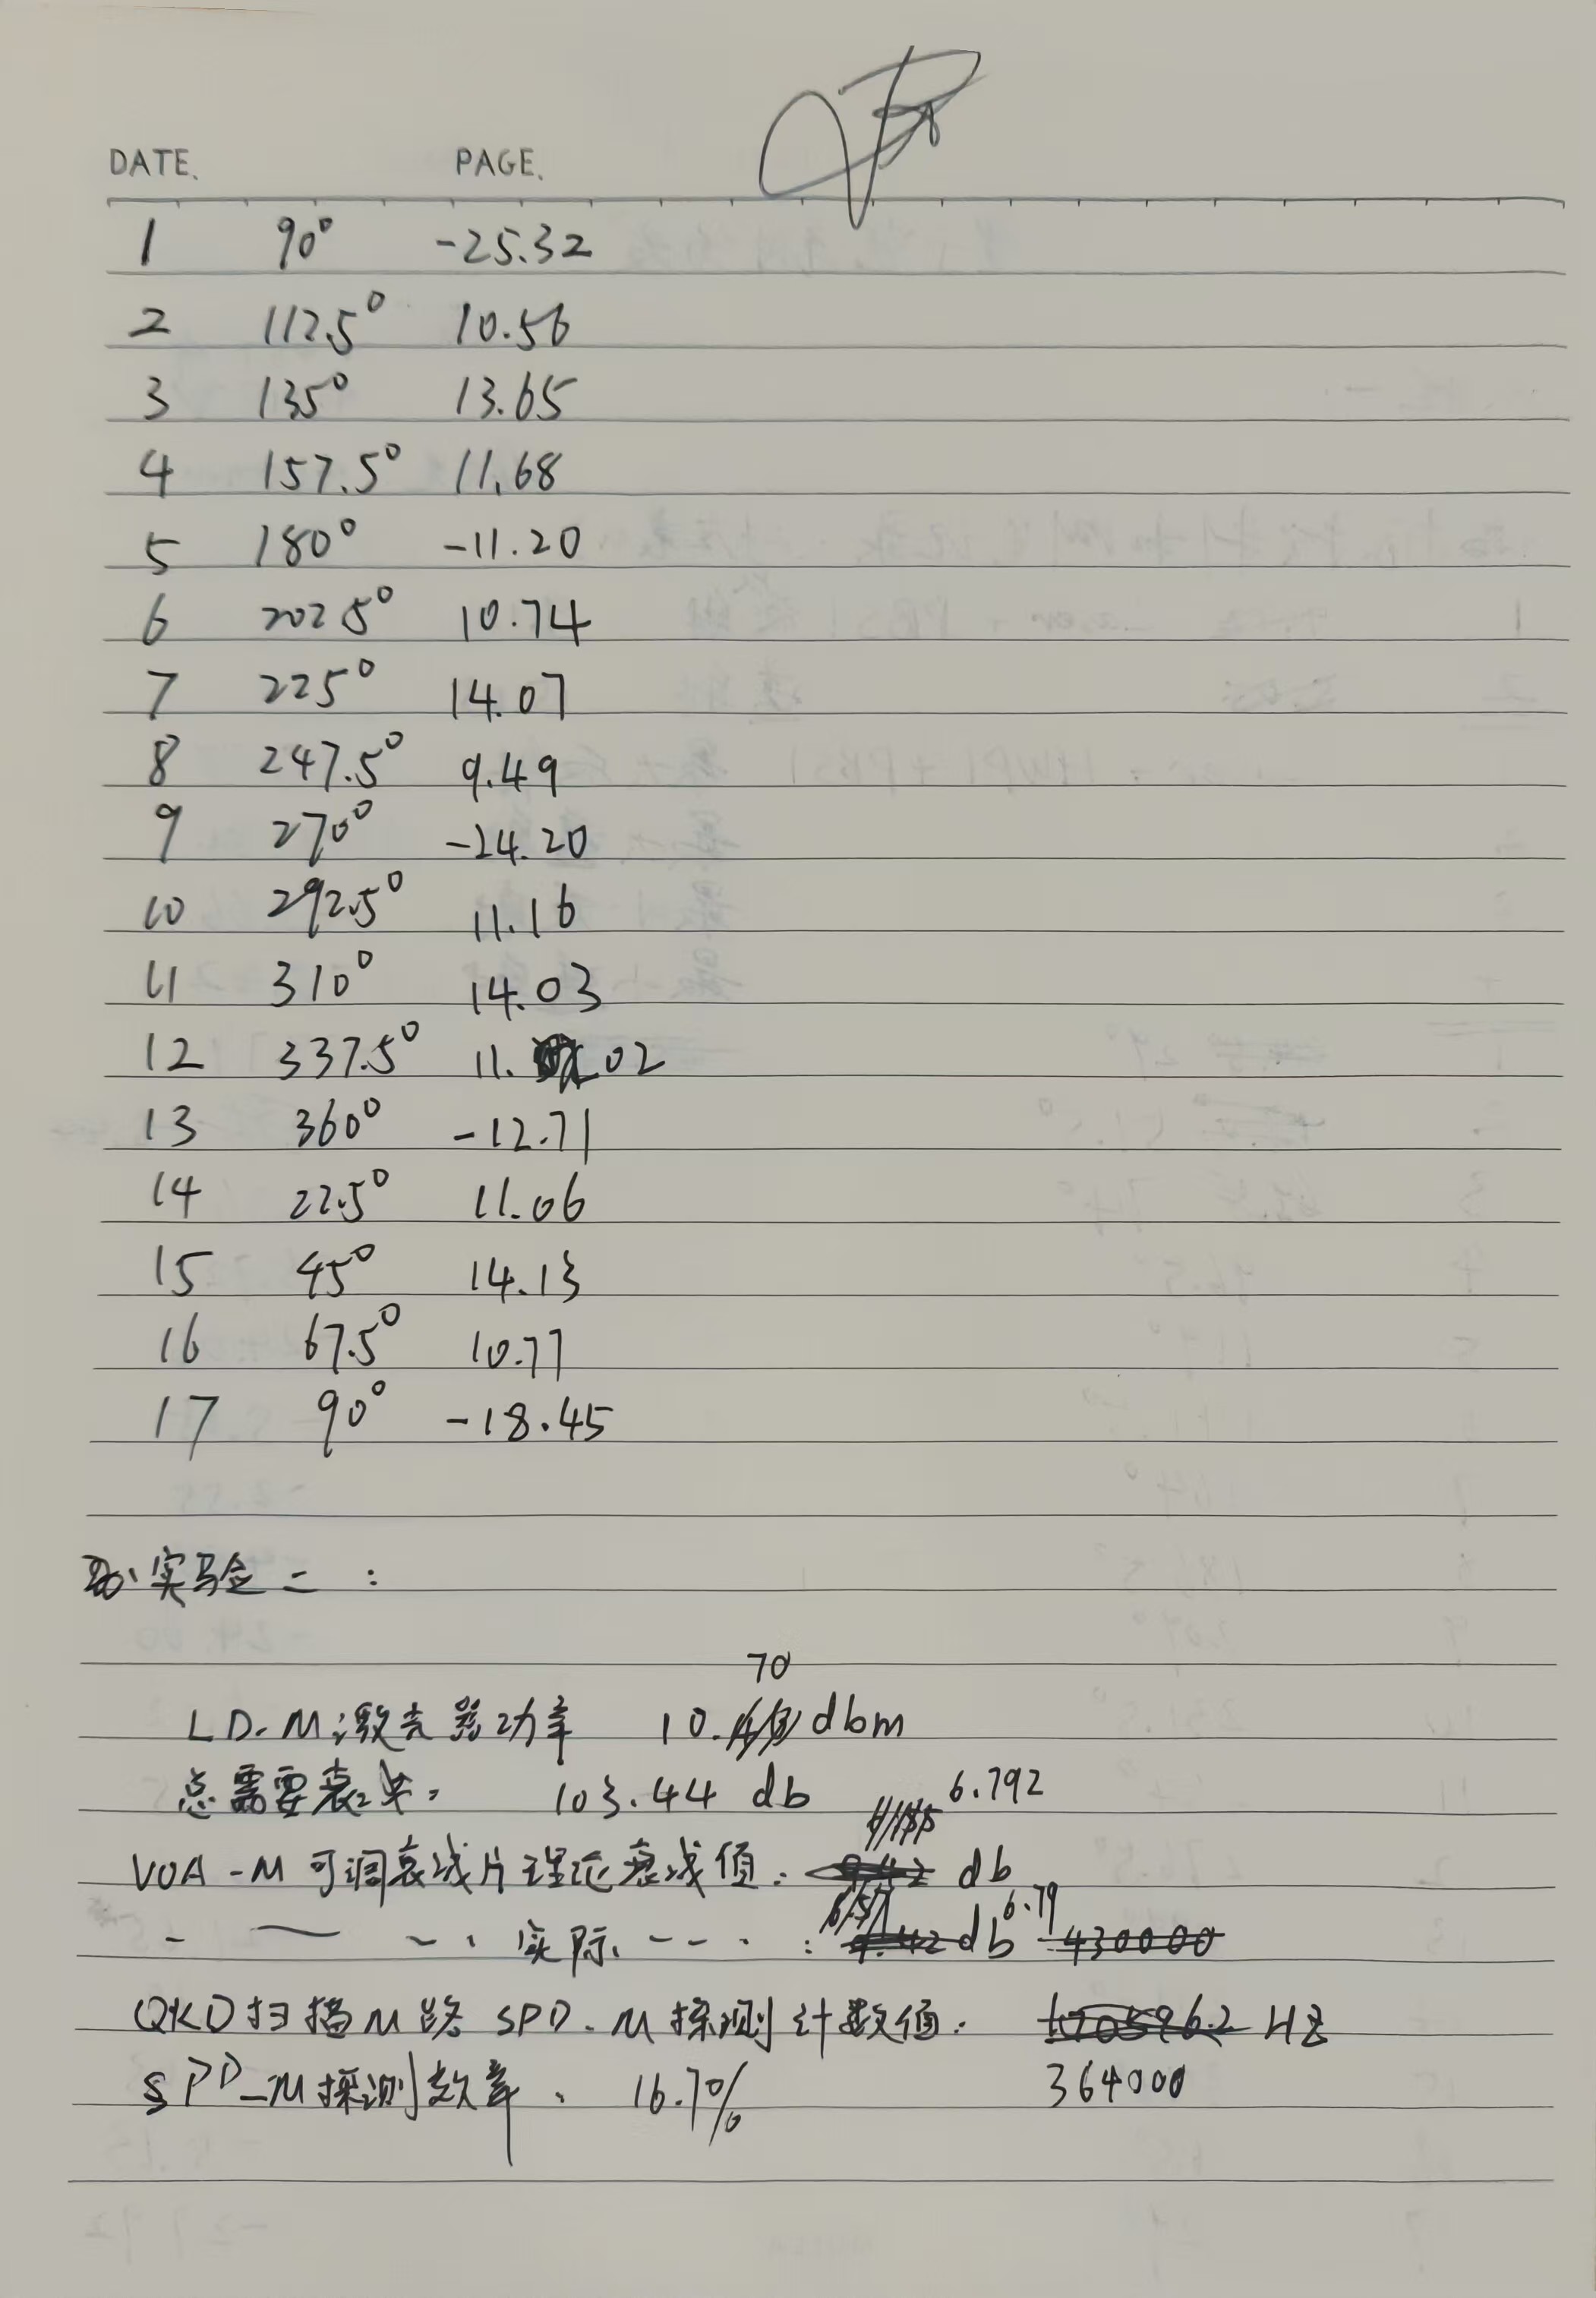 DATE. PAGE.
1 90° -25.32
2 112.5° 10.56
3 135° 13.65
4 157.5° 11.68
5 180° -11.20
6 202.5° 10.74
7 225° 14.07
8 247.5° 9.49
9 270° -24.20
10 292.5° 11.16
11 310° 14.03
12 337.5° 11.02
13 360° -12.71
14 22.5° 11.06
15 45° 14.13
16 67.5° 10.77
17 90° -18.45
实验二:
70
LD-M激光器功率 10. dbm
总需要衰减: 103.44 db 6.792
VOA-M可调衰减片理论衰减值: db
- — - - 实际 - - - : db 6.79 430000
QKD扫描M路 SPD-M探测计数值: Hz
SPD-M探测效率: 16.7% 364000